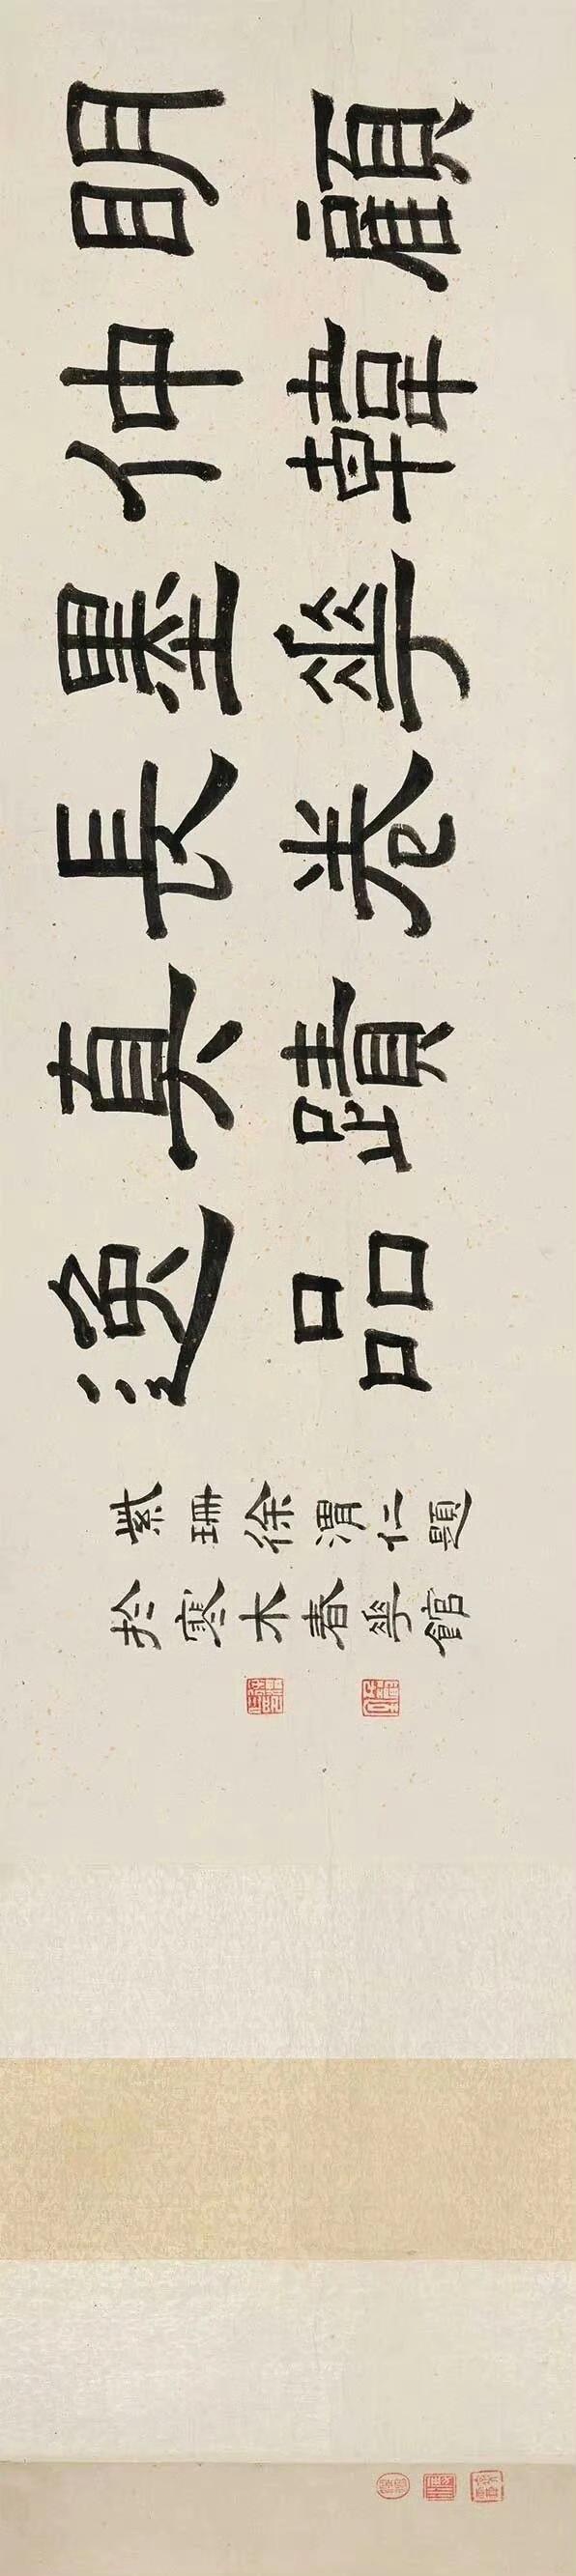 明顧
仲韓
墨華
長卷
真蹟
逸品
紫珊徐渭仁題
於寒木春華館